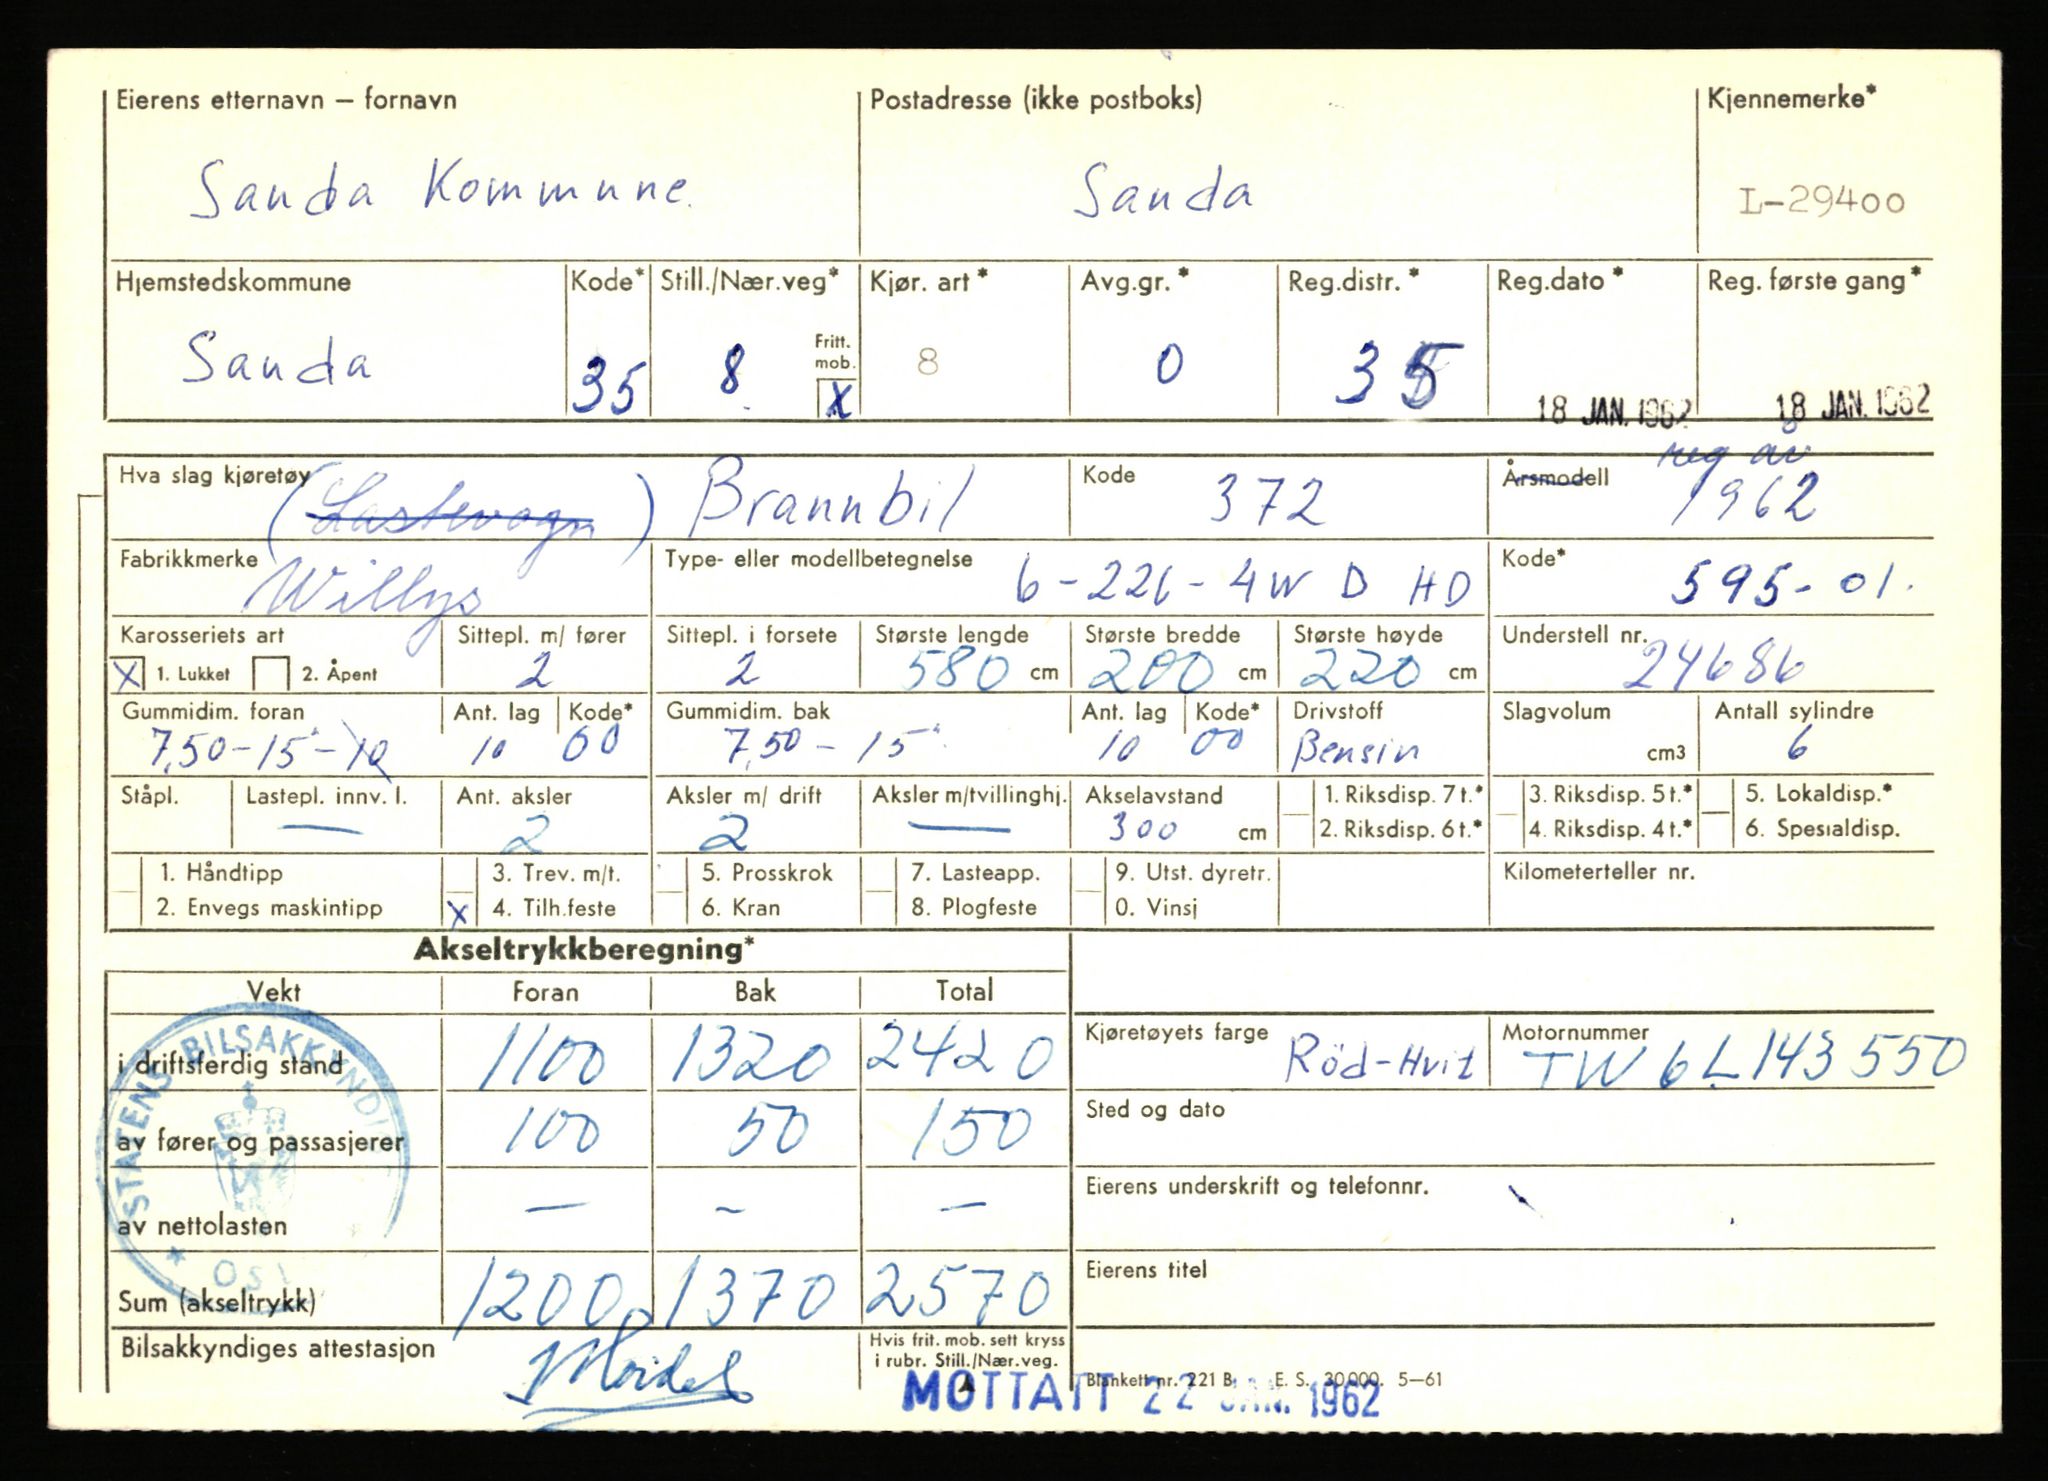 Eierens etternavn – fornavn Postadresse (ikke postboks) Kjennemerke*
Sanda Kommune. Sanda L-29400
Hjemstedskommune Kode* Still./Nær.veg* Kjør. art* Avg.gr.* Reg.distr.* Reg.dato* Reg. første gang*
Fritt.
mob.
Sanda 35 8 X 8 0 35 18 JAN. 1962 18 JAN. 1962
Hva slag kjøretøy (Lastevogn) Brannbil Kode 372 Årsmodell reg år
1962
Fabrikkmerke Willys Type- eller modellbetegnelse 6-226-4W D HD Kode* 595-01.
Karosseriets art Sittepl. m/ fører Sittepl. i forsete Største lengde Største bredde Største høyde Understell nr.
X 1. Lukket 2. Åpent 2 2 580 cm 200 cm 220 cm 24686
Gummidim. foran Ant. lag Kode* Gummidim. bak Ant. lag Kode* Drivstoff Slagvolum Antall sylindre
7.50-15"-10 10 00 7.50-15" 10 00 Bensin cm3 6
Ståpl. Lastepl. innv. l. Ant. aksler Aksler m/ drift Aksler m/tvillinghj. Akselavstand 1. Riksdisp. 7 t.* 3. Riksdisp. 5 t.* 5. Lokaldisp.*
— 2 2 — 300 cm 2. Riksdisp. 6 t.* 4. Riksdisp. 4 t.* 6. Spesialdisp.
1. Håndtipp 3. Trev. m/t. 5. Prosskrok 7. Lasteapp. 9. Utst. dyretr. Kilometerteller nr.
2. Envegs maskintipp X 4. Tilh.feste 6. Kran 8. Plogfeste 0. Vinsj
Akseltrykkberegning*
Vekt Foran Bak Total
i driftsferdig stand 1100 1320 2420 Kjøretøyets farge Röd-Hvit Motornummer TW 6L143550
av fører og passasjerer 100 50 150 Sted og dato
av nettolasten — – — Eierens underskrift og telefonnr.
Sum (akseltrykk) 1200 1370 2570 Eierens titel
STATENS BILSAKKYNDI
* OSL
Bilsakkyndiges attestasjon Hvis frit. mob. sett kryss
i rubr. Still./Nær.veg.
Blankett nr. 221 B. E. S. 30 000. 5—61
MOTTATT 22 JAN. 1962